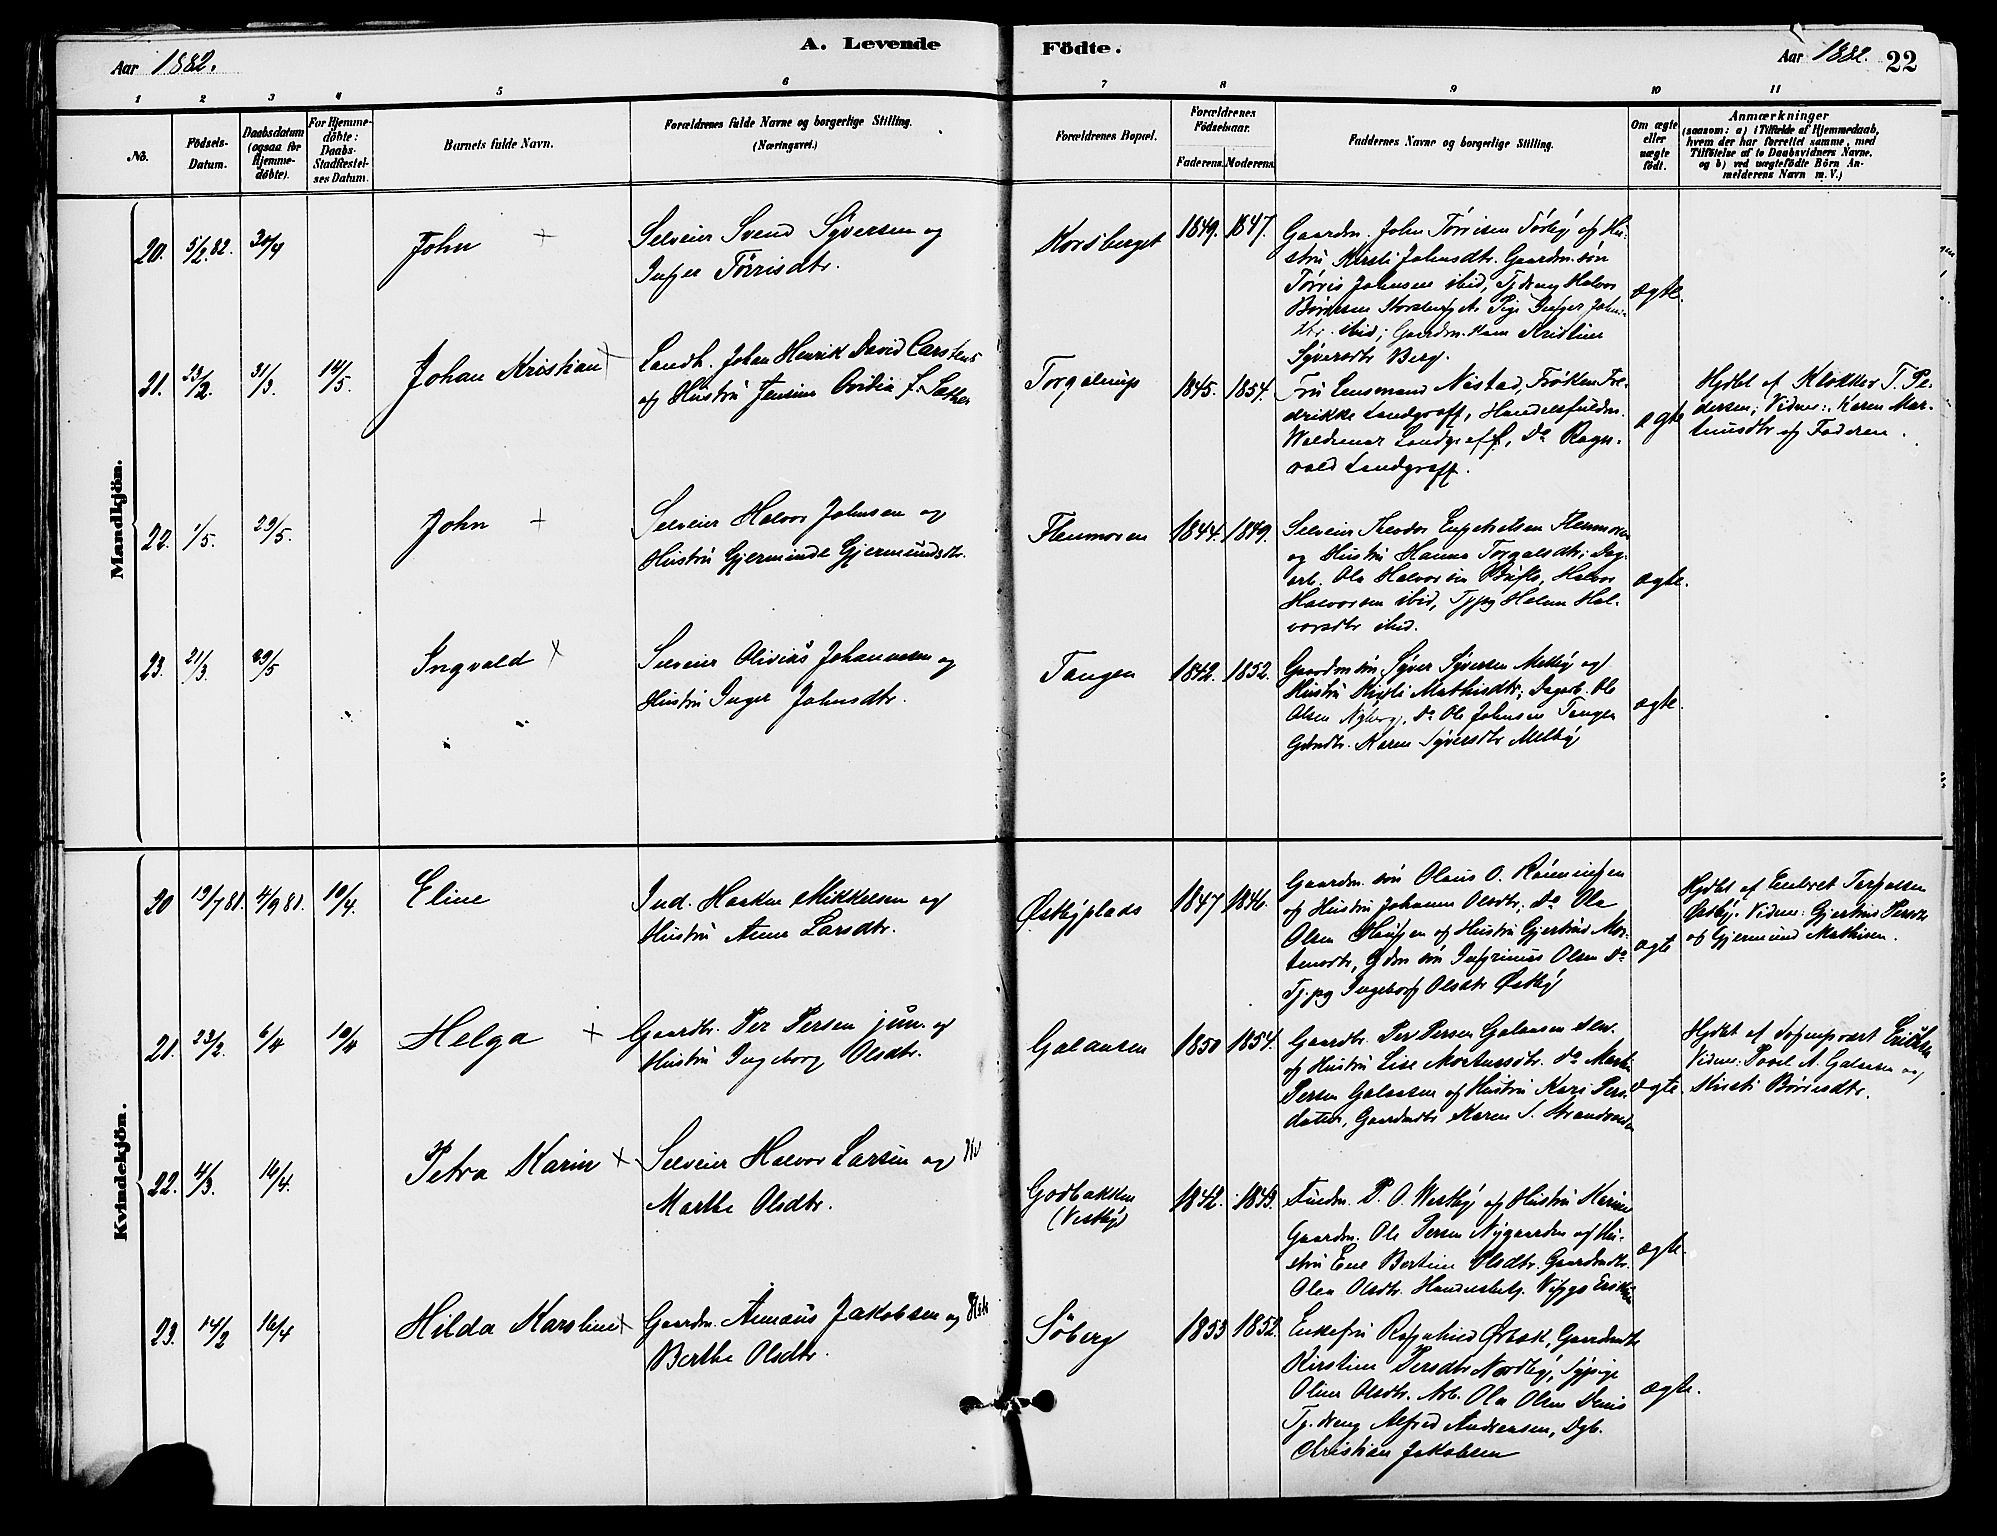 A. Levende Födte.
Aar 1882.
Aar 1882.
22
1 2 3 4 5 6 7 8 9 10 11
No.
Födsels-
Datum.
Daabsdatum
(ogsaa for
Hjemme-
döbte).
For Hjemme-
döbte:
Daabs-
Stadfæstel-
ses Datum.
Barnets fulde Navn.
Forældrenes fulde Navne og borgerlige Stilling.
(Næringsvei.)
Forældrenes Bopæl.
Forældrenes
Födselsaar.
Faderens. Moderens.
Faddernes Navne og borgerlige Stilling.
Om ægte
eller
uægte
födt.
Anmærkninger
(saasom: a) i Tilfælde af Hjemmedaab,
hvem der har forrettet samme, med
Tilföielse af to Daabsvidners Navne,
og b) ved uægtefödte Börn An-
melderens Navn m. V.)
Mandkjön.
20. 5/2 82. 30/4 John +
Selveier Svend Syversen og
Inger Törrisdtr.
Korsberget 1849. 1847.
Gaardm. John Törrisen Sörby og Hu-
stru Kirsti Johnsdtr. Gaardm. sön
Törris Johnsen ibid, Tjdreng Halvor
Börresen Korsberget. Pige Inger Johns-
dtr. ibid; Gaardm. Kristine
Syversdtr Berg.
ægte.
21. 23/2 31/3 14/5 Johan Kristian +
Landh. Johan Henrik David Carstens
og Hustru Jensine Ovidia f. Sæther
Torgalsrup 1845. 1854.
Fru Lensmand Næstad, Fröken Fre-
drikke Landgraff, Handelsfuldm.
Waldemar Landgraff, Do Ragn-
vald Landgraff.
ægte
Hjdbt af Klokker T. Pe-
dersen; Vidner: Karen Mar-
tinusdtr og Faderen.
22. 1/5. 29/5. John +
Selveier Halvor Johnsen og
Hustru Gjerminde Gjermundsdtr.
Flenmoen 1844. 1849.
Selveier Theodor Engebretsen Flenmoen
og Hustru Hanna Torgalsdtr; Dag-
arb. Ole Halvorsen, Halvor
Halvorsen ibid, Tjpg Helene Hal-
vorsdtr ibid.
ægte.
23. 21/3 29/5 Ingvald +
Selveier Olivius Johannesen og
Hustru Inger Johnsdtr.
Tangen 1842. 1852.
Gaardm sön Syver Syversen Melby og
Hustru Mathisdtr; Dagarb. Ole
Olsen Nyberg, Do Ole Johnsen Tangen
Karen Syversdtr Melby
ægte.
Kvindekjön.
20 19/7 81. 4/9 81. 10/4. Eline
Ind. Haaken Mikkelsen og
Hustru Anne Larsdtr.
Östbyplads 1847 1846.
Gaardm. sön Olaus O. Röiningen
og Hustru Johanne Olsdtr; Do Ole
Olsen Haugen og Hustru Gjertrud Mor-
tensdtr, Gdm sön Ingrinius Olsen Do
Tj.pg Ingeborg Olsdtr Östby
ægte
Hjdbt af Embret Torgalsen
Östby. Vidner: Gjertrud Persdtr
og Gjermund Mathisen.
21. 23/2. 6/4 10/4 Helga +
Gaardbr. Per Persen jun. og
Hustru Ingeborg Olsdtr.
Galaasen 1850 1854.
Gaardbr. Per Persen Galaasen sen.
og Hustru Lise Mortensdtr. Do Martin
Persen Galaasen og Hustru Kari Pers-
datter, Gaardmdtr Karen S. Strandvold
ægte.
Hjdbt af Eriksen
Vidner: Povel A. Galaasen og
Kirsti Börresdtr.
22. 4/3. 14/4. Petra Karin +
Selveier Halvor Larsen og Hu
Marthe Olsdtr.
Godbakken
(Vestby) 1842. 1843.
P. O. Westby og Hustru Karine
Gaardm. Ole Persen Nygaarden og Hu-
stru Berthe Olsdtr. Gaardmdtr.
Olea Olsdtr.
ægte.
23. 14/2 16/4 Hilda Karoline +
Gaardm. Annæus Jakobsen og Hstr
Berthe Olsdtr.
Söberg 1853 1852.
Enkefru Ragnhild Örbæk, Gaardmdtr
Kirstine Persdtr Nordby, Sypige
Oline Olsdtr. Arb. Ole Olsen
Tj. dreng Alfred Andreasen, Dgb.
Christian Jakobsen
ægte.